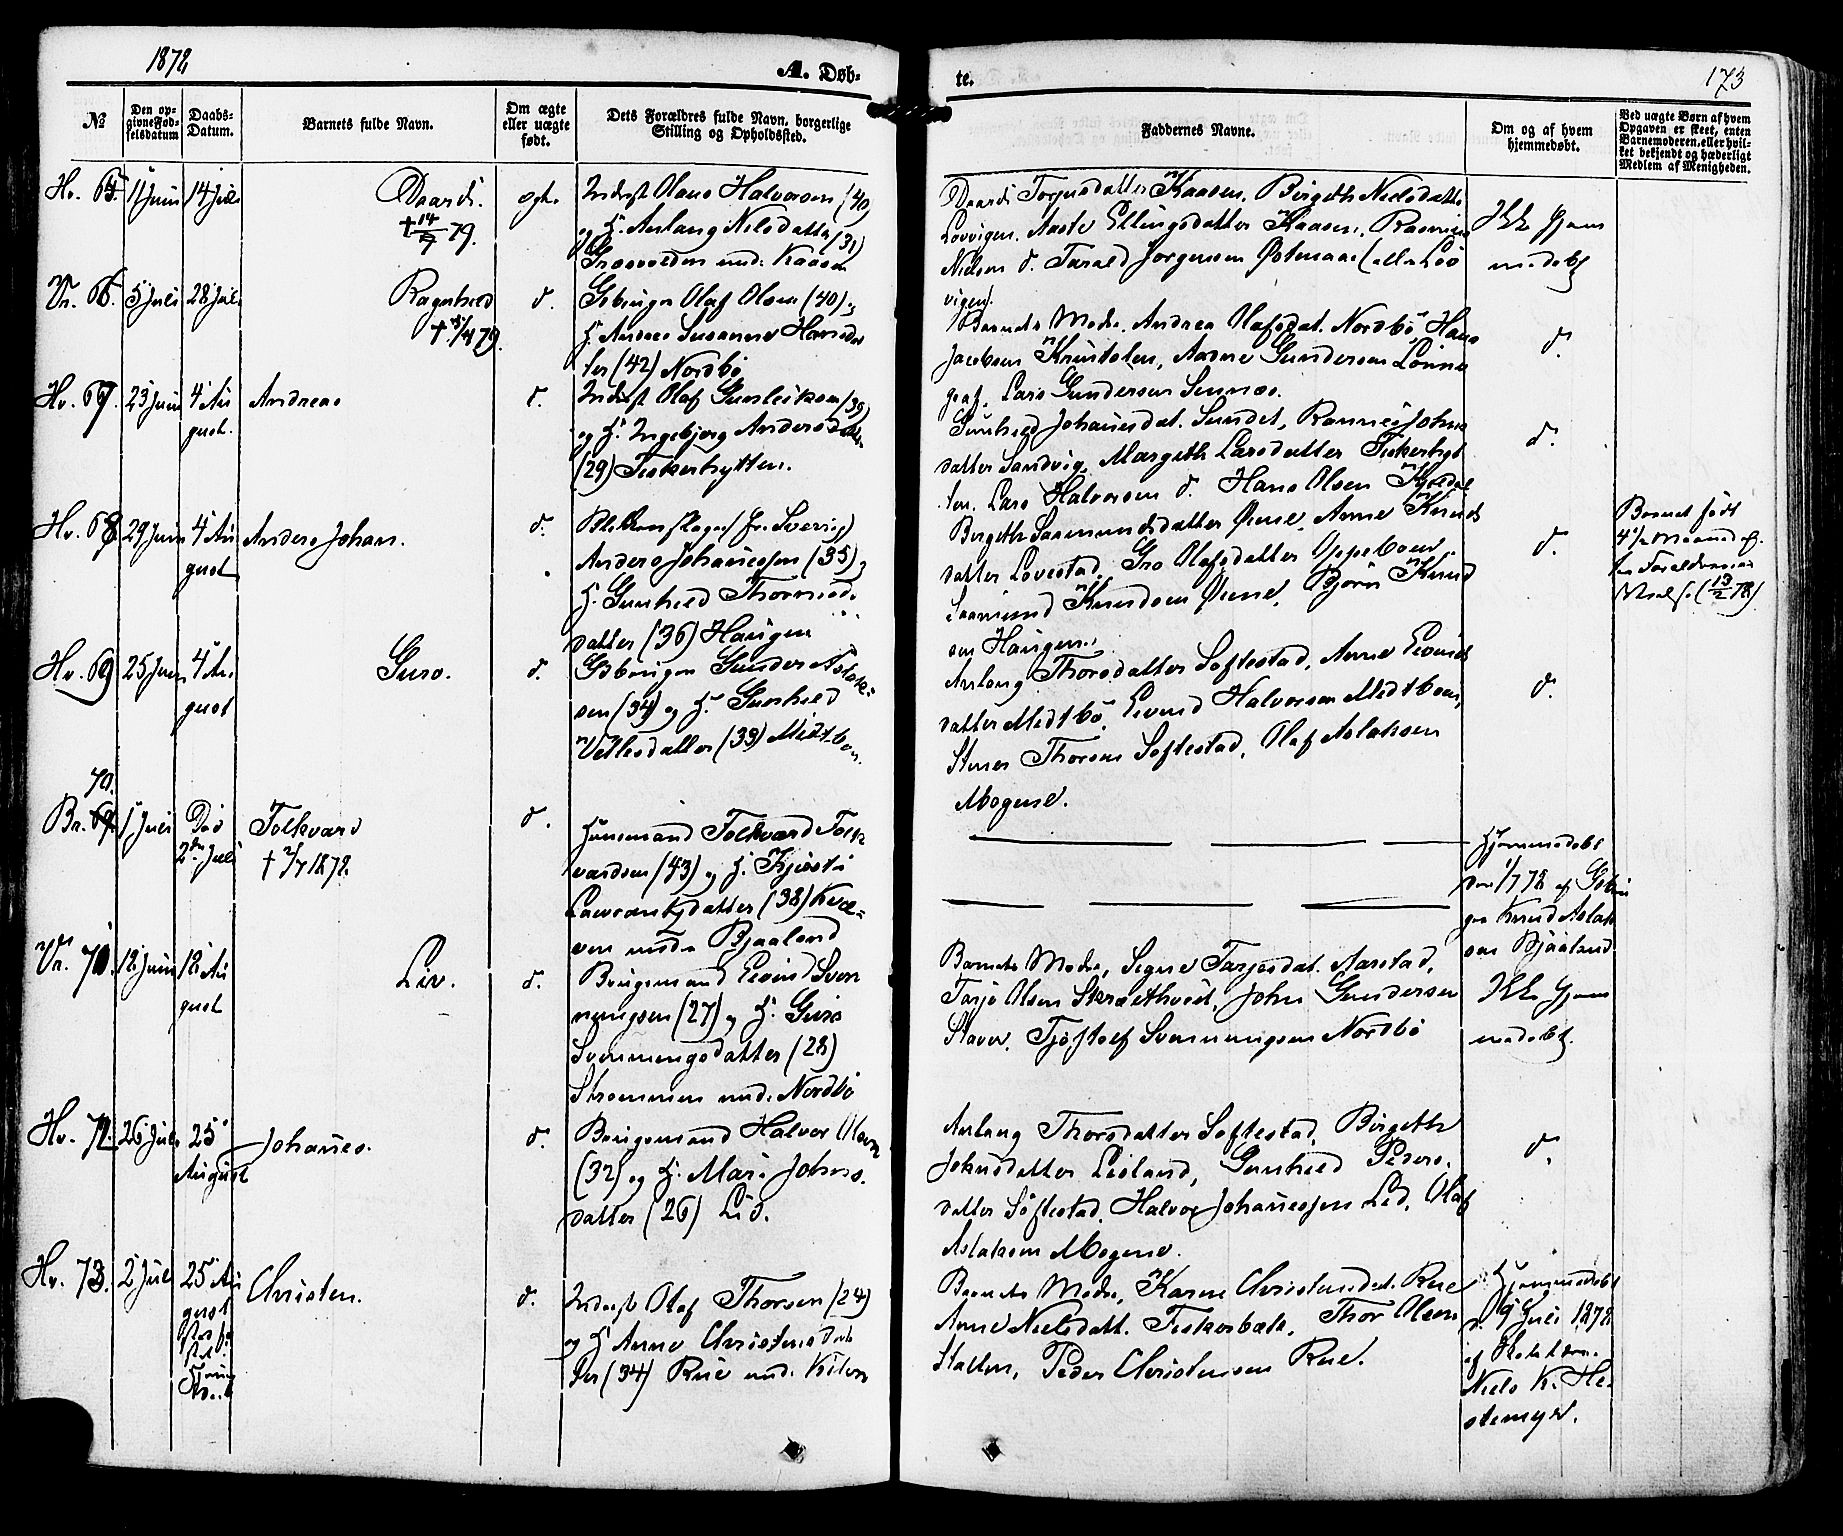 1878
A. Døb-
te.
173
№
Den op-
givne Fød-
selsdatum
Daabs-
Datum.
Barnets fulde Navn.
Om ægte
eller uægte
født.
Dets Forældres fulde Navn, borgerlige
Stilling og Opholdssted.
Faddernes Navne.
Om og af hvem
hjemmedøbt.
Ved uægte Børn af hvem
Opgaven er skeet, enten
Barnemoderen, eller hvil-
ket bekjendt og hæderligt
Medlem af Menigheden.
Hv. 65. 11 Juni 14 Juli
Daardi.
† 14/7 79.
ægte
Inderst Olaus Halvorsen (40)
og H. Aslaug Nilsdatter (31)
Græsvolden und. Kaasen
Daardi Torjusdatter Kaasen, Birgethe Nielsdatter
Lovvigen, Aaste Ellingsdatter Kaasen, Rasmus
Nielsen d. Tarald Jørgensen Østenaae (alle Lov
vigen).
Ikke hjem
medøbt
Vr. 66. 5 Juli 28 Juli
Ragnhild
d.
Gbruger Olaf Olsen (40) og
H. Andrea Susanne Hansdat
ter (42) Nordbø
Barnets Moder, Andrea Olafsdat. Nordbø, Hans
Jacobsen Knutsten, Aadne Gundersen Lønne
graf, Lars Gundersen Sunnes.
d.
Hv. 67. 23 Juni 4 Au
gust.
Andreas
d.
Inderst Olaf Gunleiksen (39)
og H. Ingebjørg Andersdatter
(29) Fiskerhytten.
Gunhild Johannesdat. Sundet, Rannei Johns
datter Sandvig, Margith Larsdatter Fiskerhyt
ten, Lars Halvorsen d. Hans Olsen
d.
Hv. 68. 29 Juni 4 Au
gust
Anders Johan.
d.
Anders Johannessen (35) og
H. Gunhild
datter (36) Haugen
Birgethe Saamundsdatter Øine, Anne Knuds
datter Lovestad, Gro Olafsdatter Oppeboen
Saamund Knudsen Øine, Bjørn Knud
sen Haugen.
d.
Barnet født
4½ Maaned ef.
ter Forældrenes
Vielse (13/2 78)
Hv. 69 25 Juni 4 Au
gust
Guro.
d.
Gbruger Gunder Aslak-
sen (34) og H. Gunhild
Vetlesdatter (33) Midtboen.
Aslaug Thorsdatter Søftestad, Anne Eivinds
datter Midtbø, Eivind Halvorsen Midtboen,
Stener Thorsen Søftestad, Olaf Aslaksen
Mogene.
d.
70.
Br. 69. 1 Juli Død
2den Juli
Folkvard
† 2/7 1878.
d.
Huusmand Folkvard Folk
vardsen (43) og H. Kjersti
Lavrantsdatter (38) Kvæ-
ven under Bjaaland
Hjemmedøbt
den 1/7 78 af Gbru
ger Knud Aslak
sen Bjaaland
Vr. 71. 12 Juni 18 Au
gust
Liv.
d.
Brugsmand Eivind Sven
nungsen (27) og H. Guro
Svenningsdatter (28)
Strømmen und. Nordbø
Barnets Moder, Signe Tarjesdat. Aarstad,
Tarje Olsen Skræthveit, John Gundersen
Staver, Tjøstolf Svennungsen Nordbø
Ikke hjem
medøbt.
Hv. 72. 26 Juli 25
August
Johannes.
d.
Brugsmand Halvor Olsen
(32) og H. Mari Johns-
datter (26) Lid.
Aslaug Thorsdatter Søftestad, Birgethe
Johnsdatter Lisland, Gunhild Peders-
datter Søftestad, Halvor Johannessen Lid, Olaf
Aslaksen Mogene.
d.
Hv. 73. 2 Juli 25 Au
gust
Christen.
d.
Inderst Olaf Thorsen (24)
og H. Anne Christensdat
ter (34) Rue und. Kilen
Barnets Moder, Karen Christensdat. Rue
Anne Nielsdatt. Fiskerbak, Thor Olsen
Stallen, Peder Christensen Rue.
Hjemmedøbt
d. 9 Juli 1878
af
Niels K. He-
stemyr.